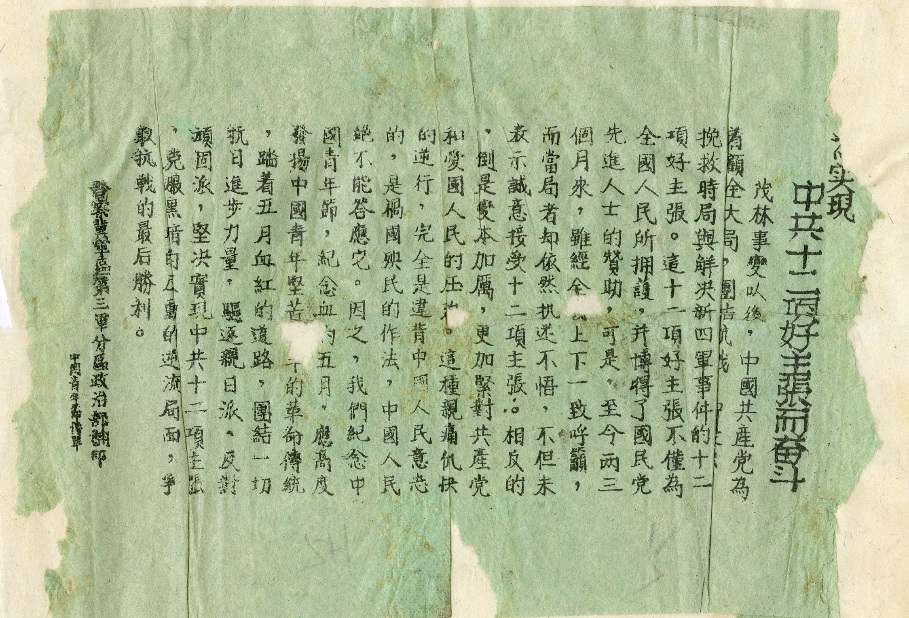 实現
中共十二項好主張而奋斗
茂林事變以後，中國共產党為
着顧全大局，團結抗战
挽救時局與解决新四軍事件的十二
項好主張。這十二項好主張不僅為
全國人民所拥護，并博得了國民党
先進人士的贊助，可是，至今两三
個月來，雖經全 上下一致呼籲，
而當局者却依然执迷不悟，不但未
表示誠意接受十二項主張。相反的
，倒是變本加厲，更加緊對共產党
和愛國人民的压 。這種親痛仇快
的逆行，完全是違背中國人民意志
的，是禍國殃民的作法，中國人民
絕不能答應它。因之，我們紀念中
國青年節，紀念血的五月，應高度
發揚中國青年堅苦 的革命傳統
，踏着五月血紅的道路，團結一切
抗日進步力量，驅逐親日派、反對
頑固派，堅决實現中共十二項主張
， 黑 的反動的逆流局面，爭
取抗戰的最后勝利。
晋察冀軍區第三軍分區政治部翻印
中國青年節傳單